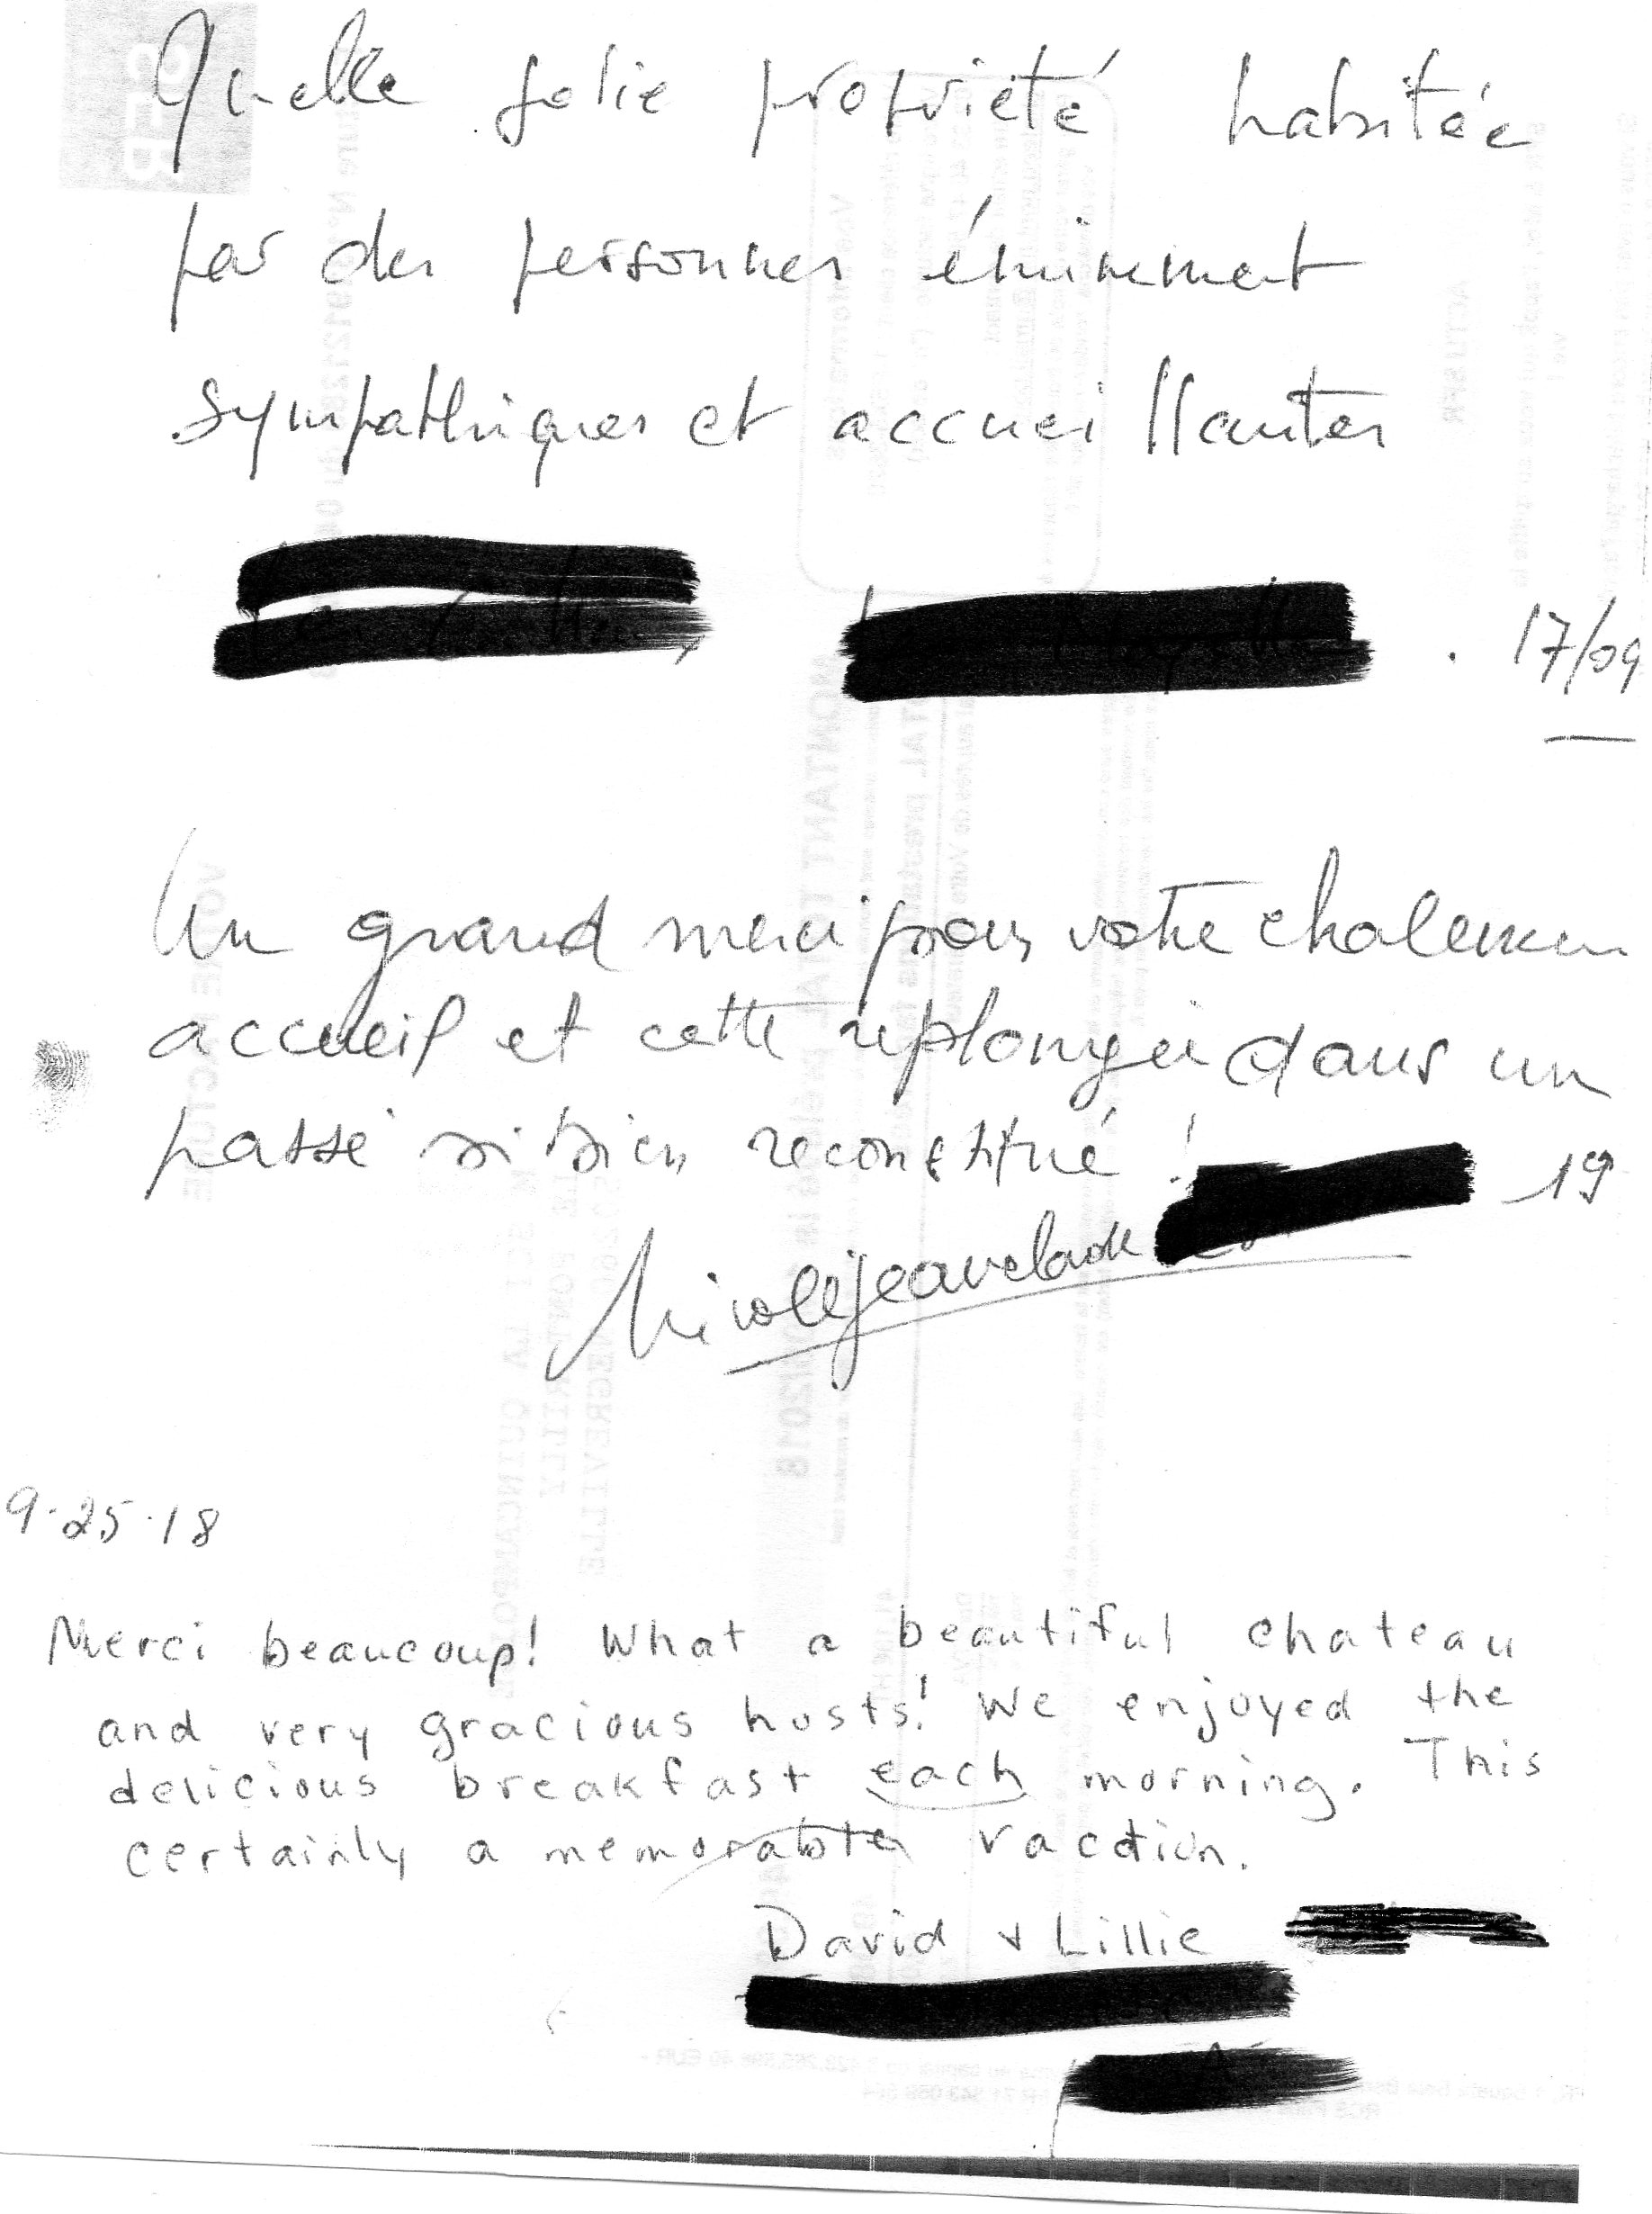 Quelle jolie propriété habitée
par des personnes éminemment
sympathiques et accueillantes
17/09
Un grand merci pour votre chaleureux
accueil et cette replongée dans un
passé si bien reconstitué !
19
Nicole Jeanclaude
9-25-18
Merci beaucoup! What a beautiful chateau
and very gracious hosts! We enjoyed the
delicious breakfast each morning. This
certainly a memorable vaction.
David & Lillie